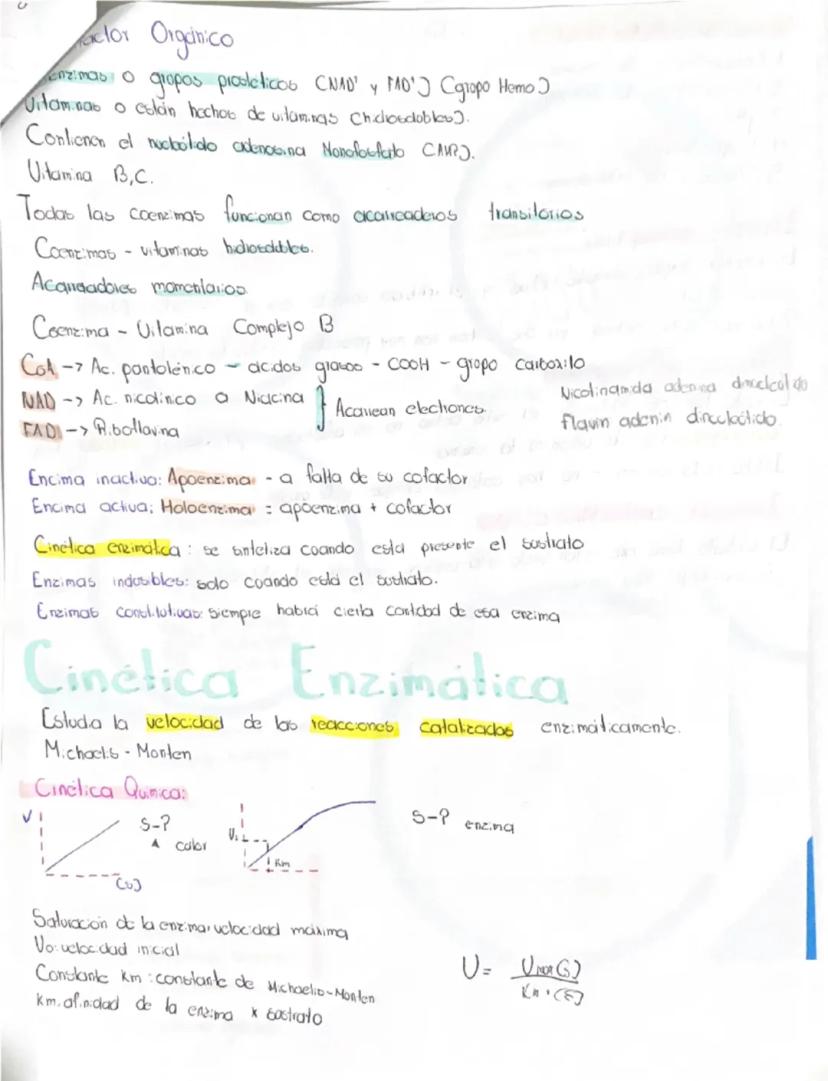 actor Orgánico
enzimas o grupos prostéticos (NAD⁺ y FAD⁺) (grupo Hemo)
Vitaminas o están hechos de vitaminas (hidrosolubles).
Contienen el nucleótido adenosina Monofosfato (AMP).
Vitamina B,C.
Todas las coenzimas funcionan como acarreadores transitorios
Coenzimas - vitaminas hidrosolubles.
Acarreadores momentarios
Coenzima - Vitamina Complejo B
CoA -> Ac. pantoténico - ácidos grasos - COOH - grupo Carboxilo
NAD -> Ac. nicotínico o Niacina } Acarrean electrones
Nicotinamida adenina dinucleótido
FAD -> Riboflavina
Flavin adenin dinucleótido.
Encima inactiva: Apoenzima - a falta de su cofactor
Encima activa: Holoenzima = apoenzima + cofactor
Cinética enzimática: se sintetiza cuando esta presente el sustrato
Enzimas indusibles: solo cuando está el sustrato.
Enzimas constitutivas: siempre habrá cierta cantidad de esa enzima
Cinética Enzimática
Estudia la velocidad de las reacciones catalizadas enzimáticamente.
Michaelis - Menten
Cinética Química:
V
S-P
calor
[S]
Vi
Km
S-P enzima
Saturación de la enzima: velocidad máxima
Vo: velocidad inicial
Constante Km: constante de Michaelis-Menten
Km. afinidad de la enzima x sustrato
V = Vmax [S]
Km + [S]